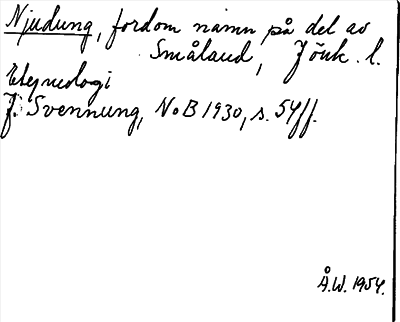 Njudung, fordom namn på del av
Småland, Jönk. l.
Etymologi
J. Svennung, NoB 1930, s. 54ff.
Å.W. 1954.